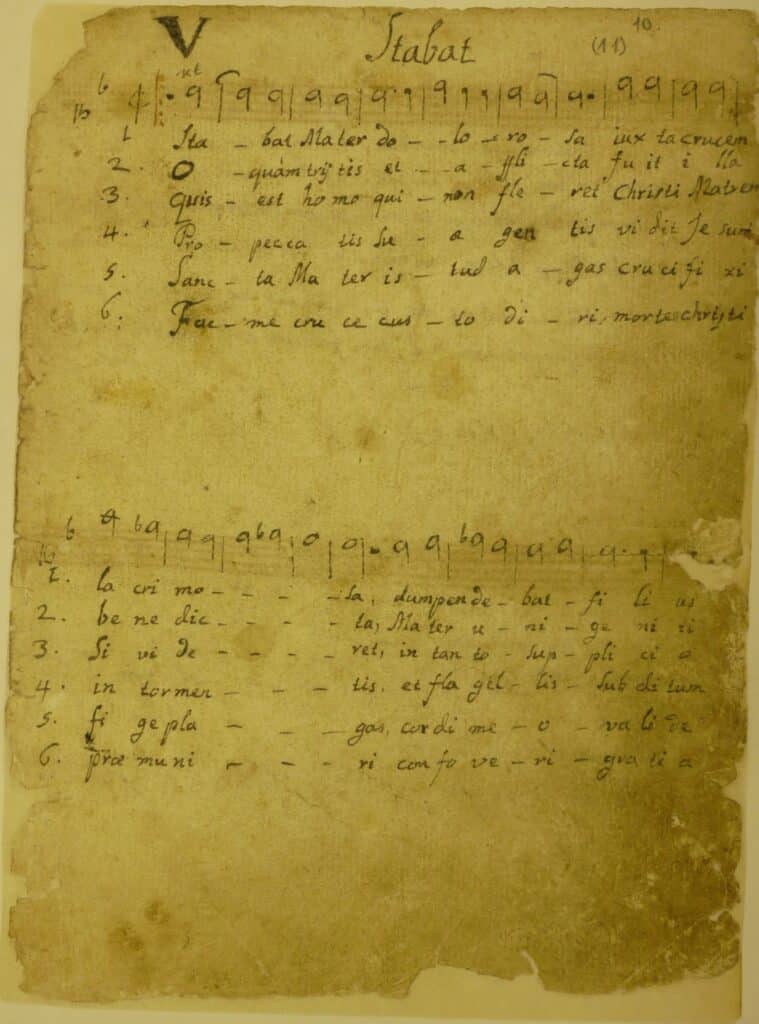 V Stabat (11) 10.
ut
1 Sta - bat Mater do - - lo - ro - sa iux ta crucem
2. O - quám tris tis et - - a - ffli - cta fu it i lla
3. Quis - est ho mo qui - non fle - ret Christi Matrem
4. Pro - pecca tis Su - a gen tis vi dit Je sum
5. Sanc - ta Ma ter is - tud a - gas cru ci fi xi
6. Fac - me cru ce cus - to di - ri, morte christi
1. la cri mo - - - - sa, dum pen de - bat - fi li us
2. be ne dic - - - - ta, Mater u - ni - ge ni ti
3. Si vi de - - - - ret, in tan to - sup - pli ci o
4. in tormen - - - tis, et fla gel - lis - sub di tum
5. fi ge pla - - - gas, cordi me - o - va li de
6. præ muni - - - ri confo ve - ri - gra ti a